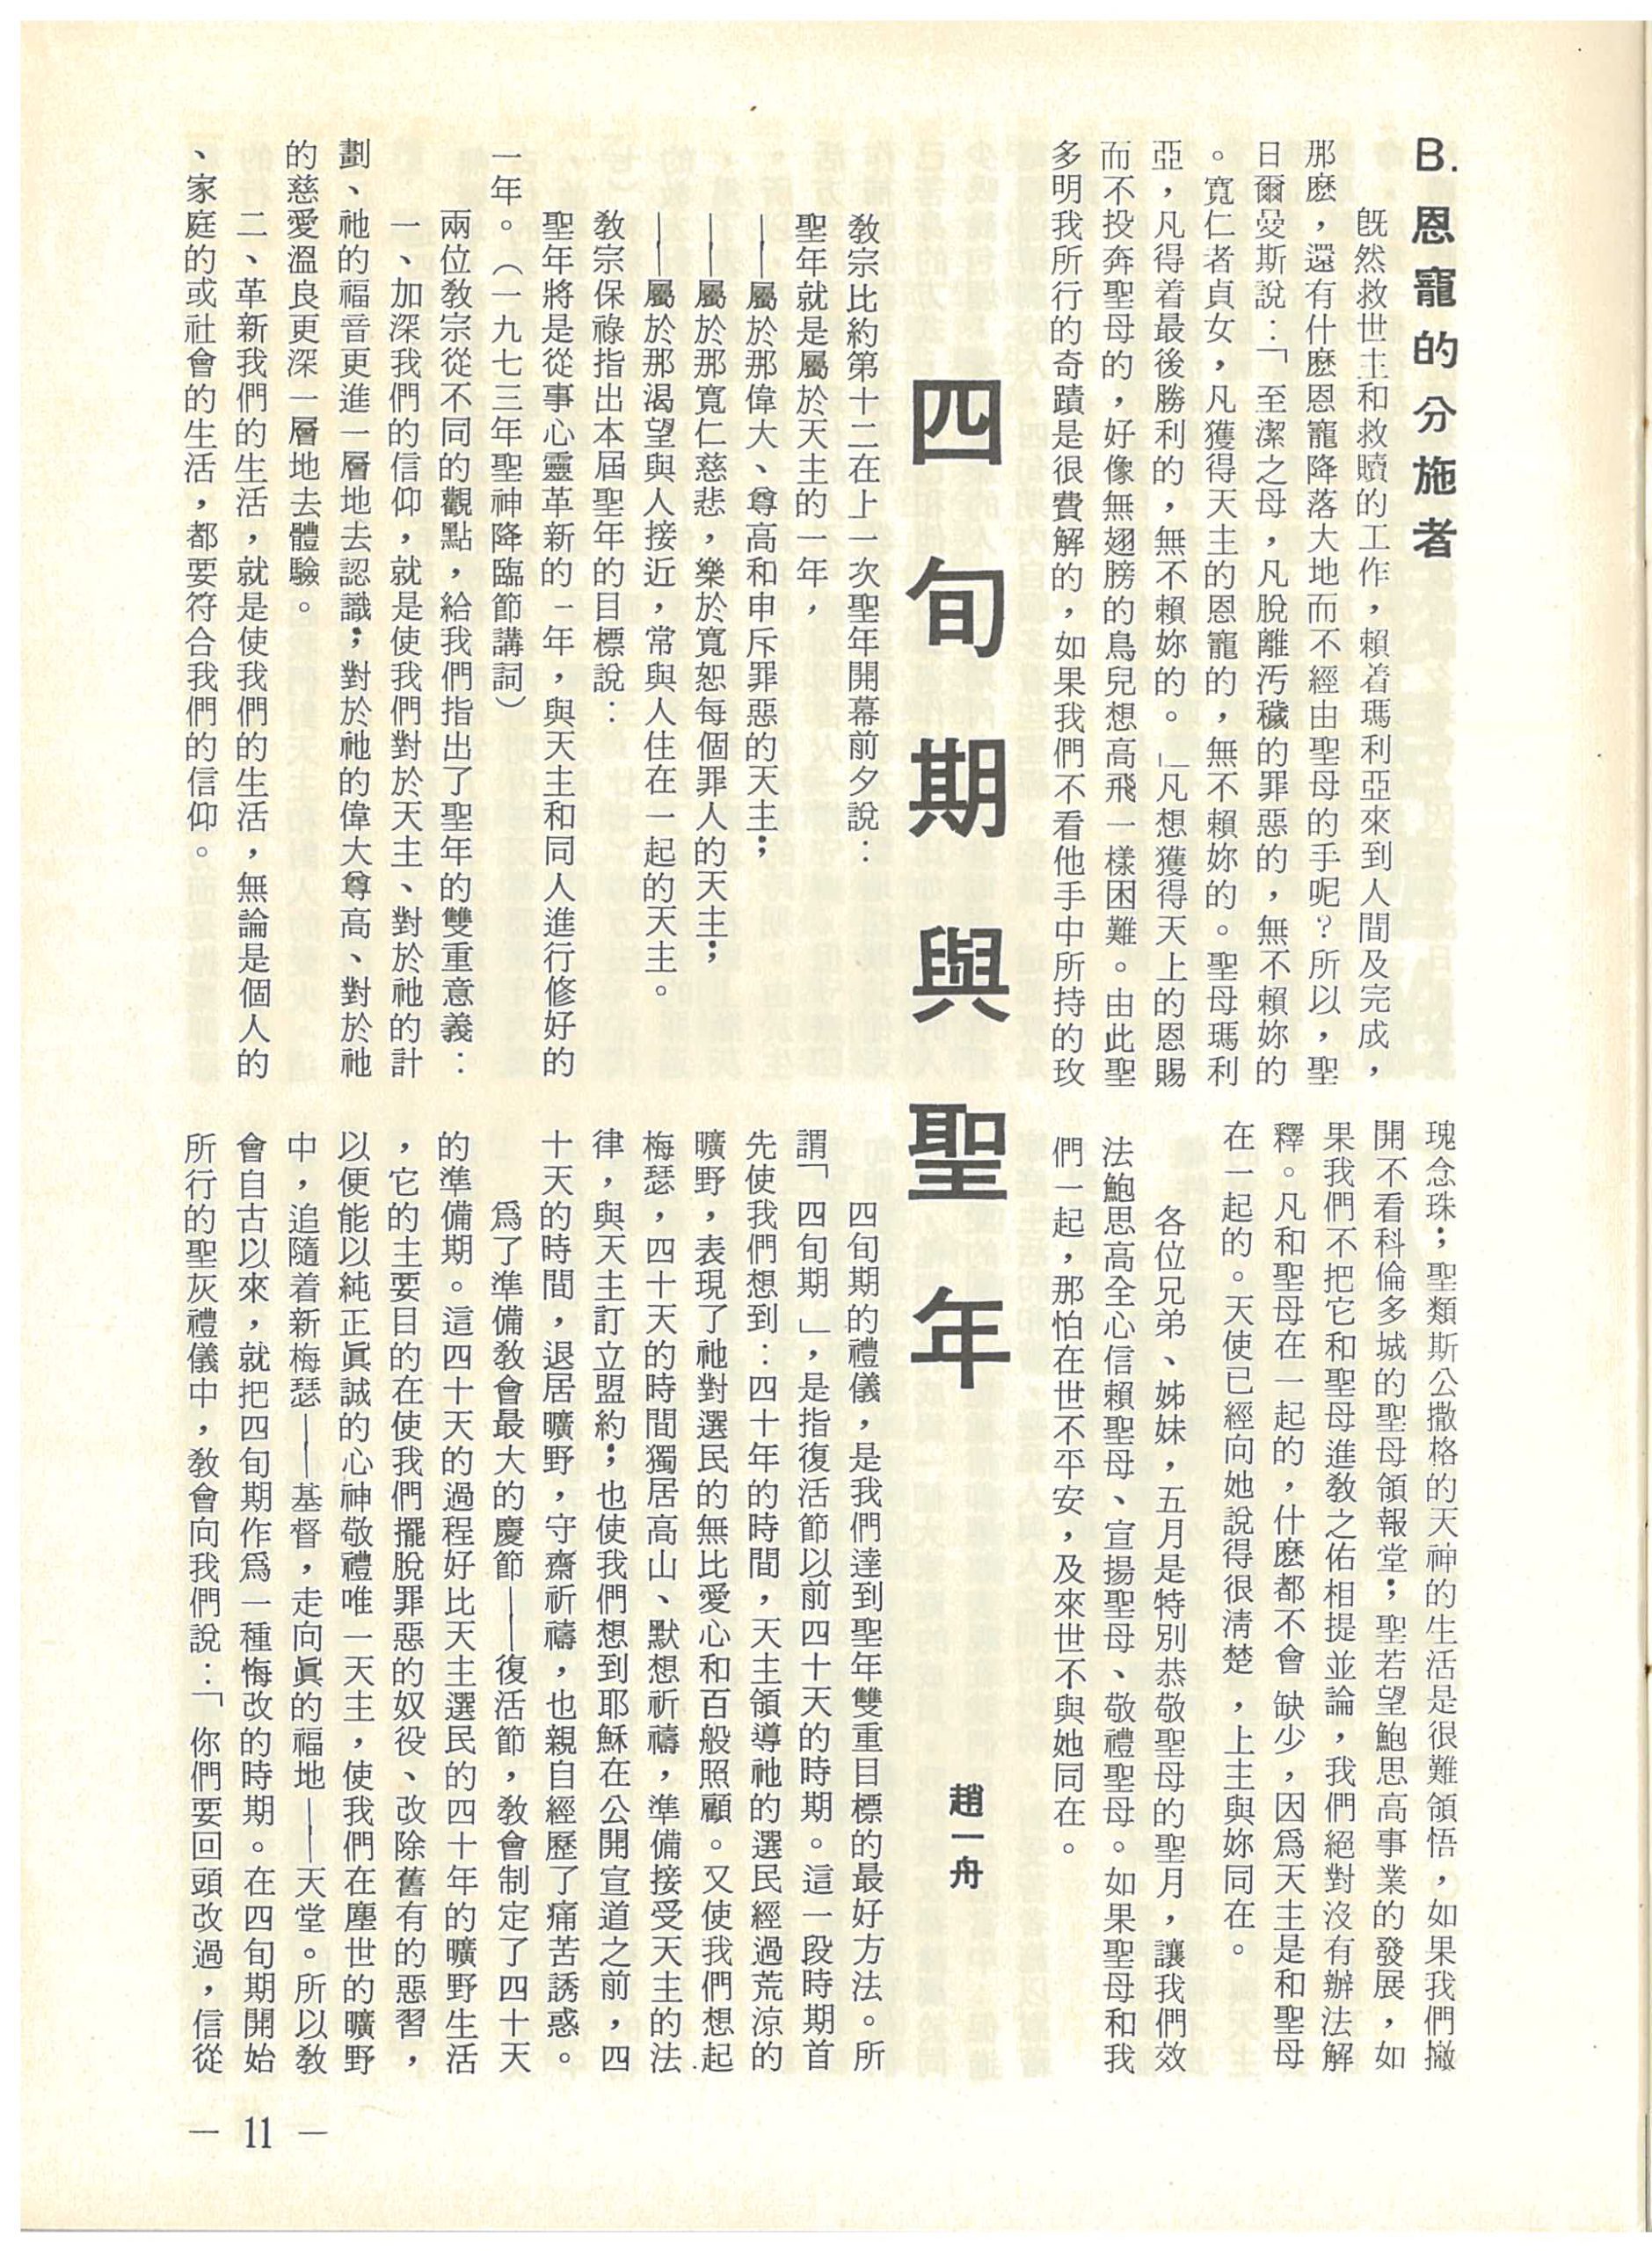 B.恩寵的分施者
既然救世主和救贖的工作，賴着瑪利亞來到人間及完成，
那麽，還有什麽恩寵降落大地而不經由聖母的手呢？所以，聖
日爾曼斯說：「至潔之母，凡脫離汚穢的罪惡的，無不賴妳的
。寬仁者貞女，凡獲得天主的恩寵的，無不賴妳的。聖母瑪利
亞，凡得着最後勝利的，無不賴妳的。」凡想獲得天上的恩賜
而不投奔聖母的，好像無翅膀的鳥兒想高飛一樣困難。由此聖
多明我所行的奇蹟是很費解的，如果我們不看他手中所持的玫
瑰念珠；聖類斯公撒格的天神的生活是很難領悟，如果我們撇
開不看科倫多城的聖母領報堂；聖若望鮑思高事業的發展，如
果我們不把它和聖母進敎之佑相提並論，我們絕對沒有辦法解
釋。凡和聖母在一起的，什麽都不會缺少，因爲天主是和聖母
在一起的。天使已經向她說得很淸楚，上主與妳同在。
各位兄弟、姊妹，五月是特別恭敬聖母的聖月，讓我們效
法鮑思高全心信賴聖母、宣揚聖母、敬禮聖母。如果聖母和我
們一起，那怕在世不平安，及來世不與她同在。
四旬期與聖年
趙一舟
敎宗比約第十二在上一次聖年開幕前夕說：
聖年就是屬於天主的一年，
——屬於那偉大、尊高和申斥罪惡的天主；
——屬於那寬仁慈悲，樂於寬恕每個罪人的天主；
——屬於那渴望與人接近，常與人住在一起的天主。
敎宗保祿指出本屆聖年的目標說：
聖年將是從事心靈革新的一年，與天主和同人進行修好的
一年。（一九七三年聖神降臨節講詞）
兩位敎宗從不同的觀點，給我們指出了聖年的雙重意義：
一、加深我們的信仰，就是使我們對於天主、對於祂的計
劃、祂的福音更進一層地去認識；對於祂的偉大尊高、對於祂
的慈愛溫良更深一層地去體驗。
二、革新我們的生活，就是使我們的生活，無論是個人的
、家庭的或社會的生活，都要符合我們的信仰。
四旬期的禮儀，是我們達到聖年雙重目標的最好方法。所
謂「四旬期」，是指復活節以前四十天的時期。這一段時期首
先使我們想到：四十年的時間，天主領導祂的選民經過荒涼的
曠野，表現了祂對選民的無比愛心和百般照顧。又使我們想起
梅瑟，四十天的時間獨居高山、默想祈禱，準備接受天主的法
律，與天主訂立盟約；也使我們想到耶穌在公開宣道之前，四
十天的時間，退居曠野，守齋祈禱，也親自經歷了痛苦誘惑。
爲了準備敎會最大的慶節——復活節，敎會制定了四十天
的準備期。這四十天的過程好比天主選民的四十年的曠野生活
，它的主要目的在使我們擺脫罪惡的奴役、改除舊有的惡習，
以便能以純正眞誠的心神敬禮唯一天主，使我們在塵世的曠野
中，追隨着新梅瑟——基督，走向眞的福地——天堂。所以敎
會自古以來，就把四旬期作爲一種悔改的時期。在四旬期開始
所行的聖灰禮儀中，敎會向我們說：「你們要回頭改過，信從
— 11 —